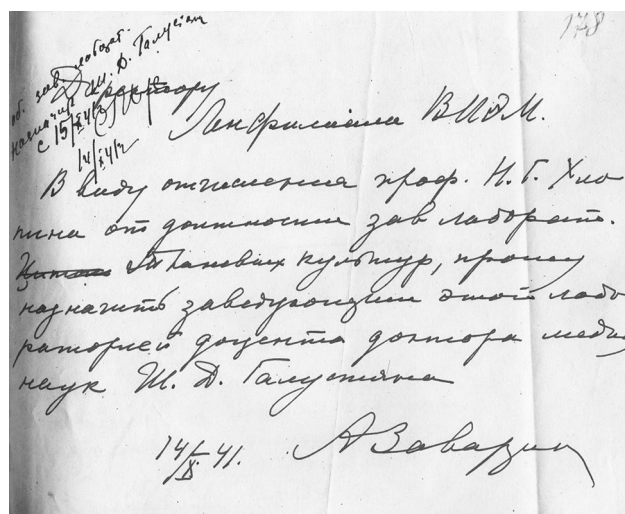 178
об. зав. лаборат.
назначить Ш. Д. Галустян
с 15/XI 41 г.
14/XI 41 г.
Директору
Ленфилиала ВИЭМ.
В виду отчисления проф. Н. Г. Хло
пина от должности зав лаборат.
тканевых культур, прошу
назначить заведующим этой лабо
раторией доцента доктора медиц
наук Ш. Д. Галустяна
14/X 41. А Заварзин